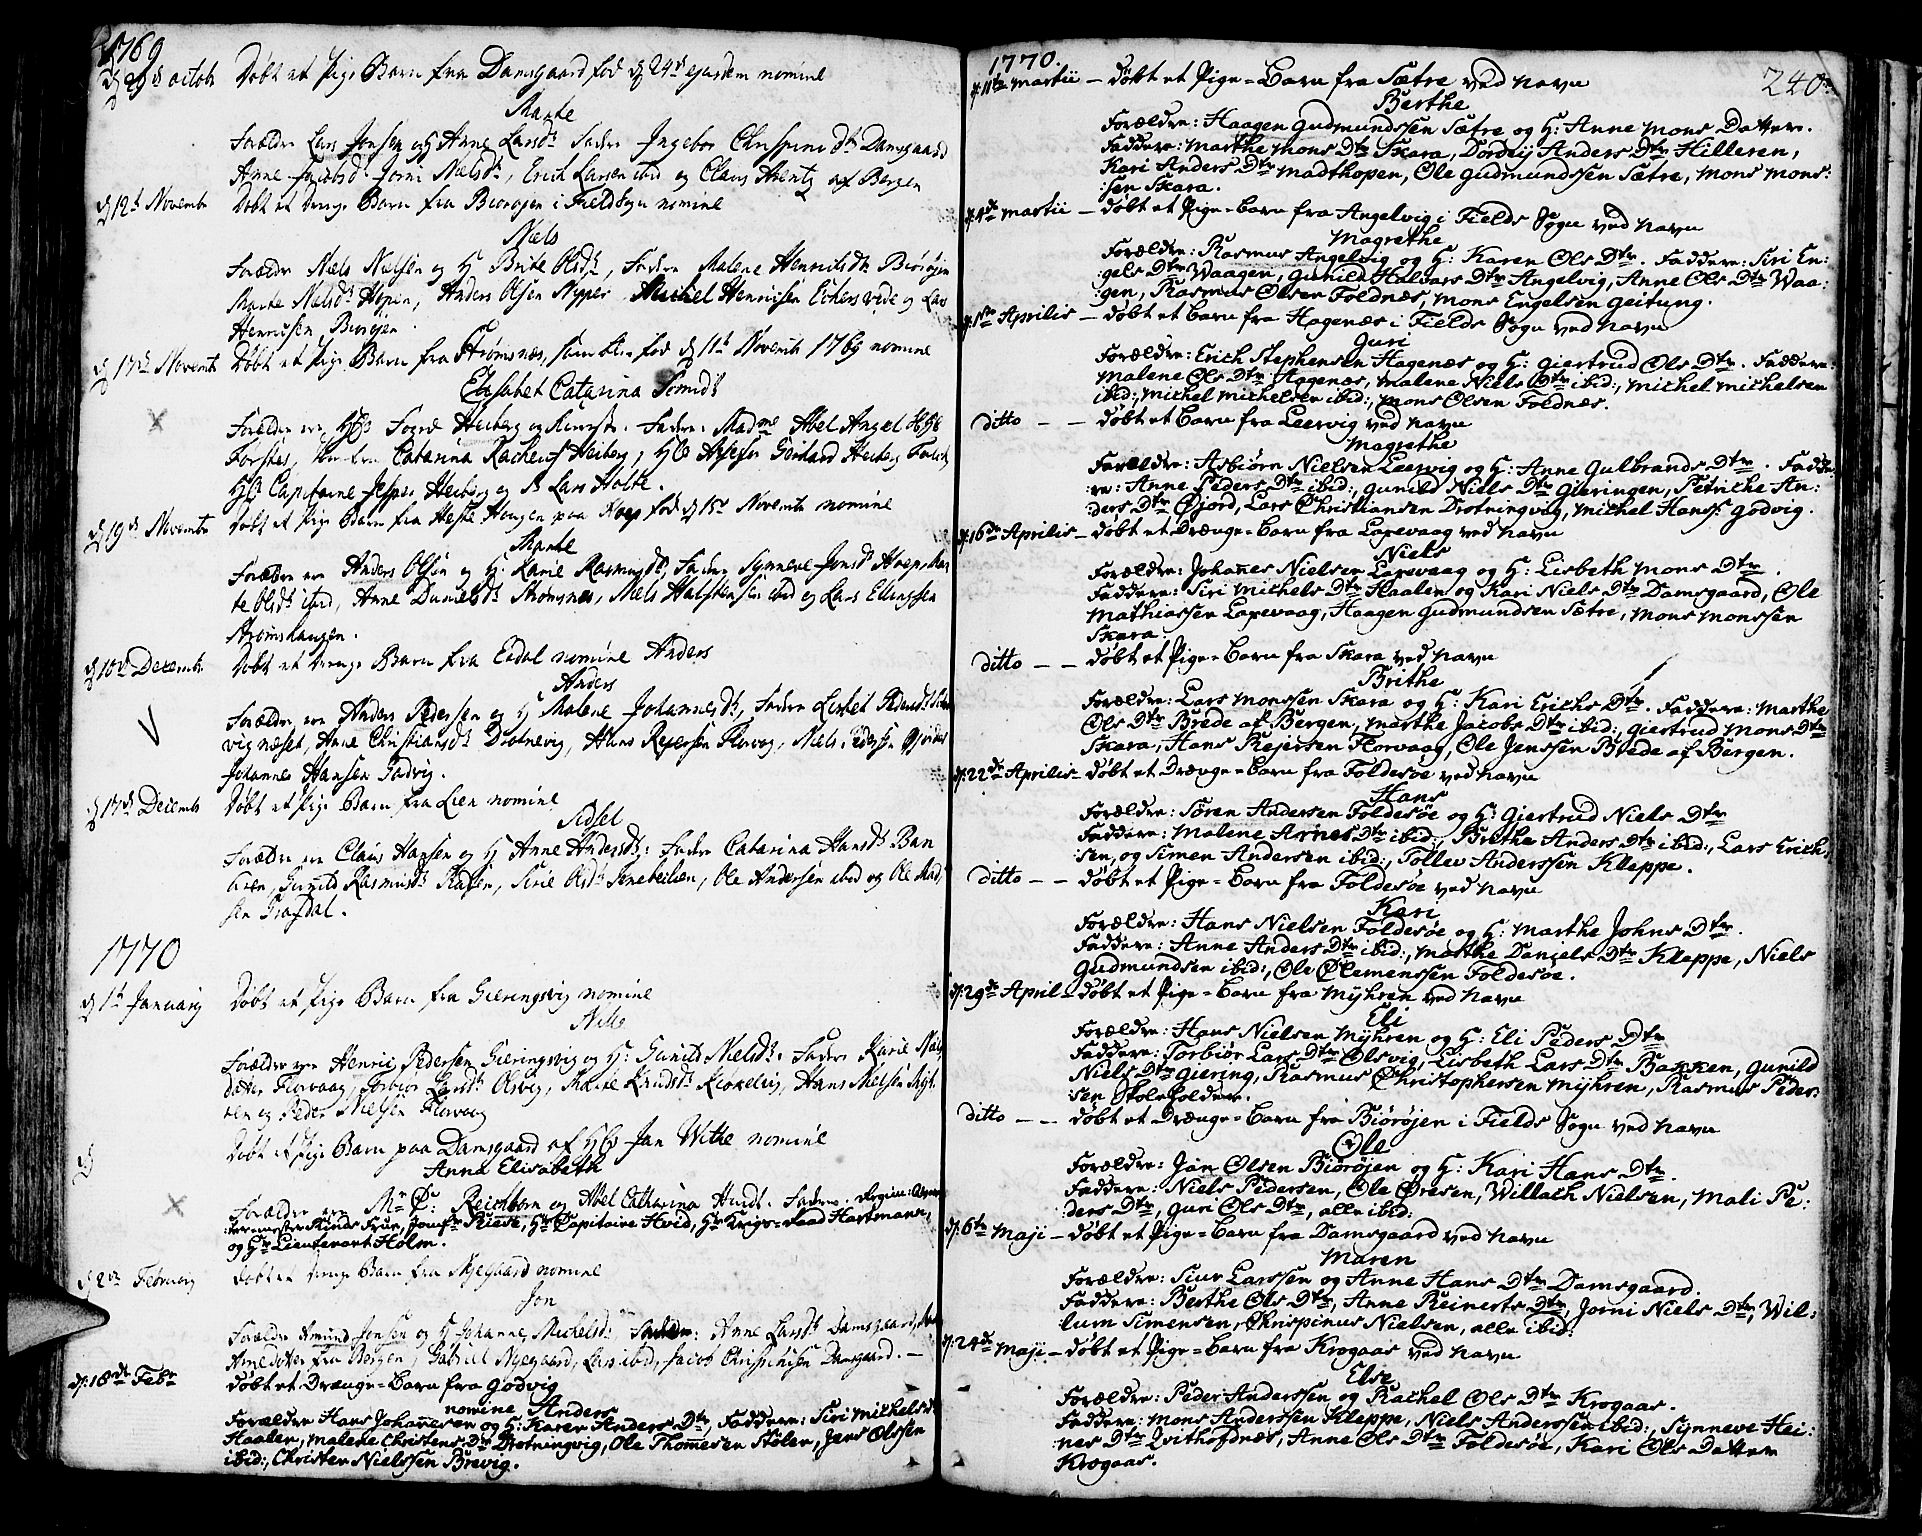 1769
d 29d octob Døbt et Pige Barn fra Damsgaard fød d 24d ejusdem nomine
Marte
Forældre Lars Jonsen og H Anne Larsd. Faddere Ingebor Chrispini d. Damsgaard
Anne Jacobsd. Jorni Nielsd., Erich Larsen ibid og Claus Arentz af Bergen
d 12t Novembr Døbt et Drenge Barn fra Biorøjen i Fieldsogn nomine
Niels
Forældre Niels Nielsen og H Brite Olsd., Faddere Malene Henricksd. Biorøjen
Marte Nielsd. Hopen, Anders Olsen Nipper Michel Henricsen Echersvede og Lars
Henricsen Biorøjen.
d 17d Novembr Døbt et Pige Barn fra Strømsnes, som blev fød d 11t Novemb 1769 nomine
Elisabet Catarina
Forældre ere Hr Heiberg og Faddere: Madme Abel Angel
Catarina Heiberg, Hr Assessor Gerhard Heiberg
Hr Capitaine Jesper Heiberg og Lars Holte.
d 19d Novembr Døbt et Pige Barn fra Haugen paa fød d 15 Novembr nomine
Marte
Forældre ere Anders Olsen og H: Karie Rasmusd., Faddere Synneve Jonsd
te Olsd. ibid, Anne Danielsd. Strømsnes, Niels Halstensen ibid og Lars Ellingsen
Strømshaugen.
d 10d Decembr Døbt et Drenge Barn fra Eidal nomine Anders
Anders
Forældre ere Anders Pedersen og H Malene Johannesd., Faddere Lisbet Pedersd.
vignæset, Anne Christiansd. Drotnevig, Hans Rejersen Florvog, Niels Pedersen
Johannes Hansen Godvig.
d 17d Decemb Døbt et Pige Barn fra Lien nomine
Sidsel
Forældre ere Claus Hansen og H Anne Andersd.: Faddere Catarina Hansd. Ban
Gunild Rasmusd. Sirie Olsd. Ole Andersen ibid og Ole Mad
sen
1770
d 1t January Døbt et Pige Barn fra Gieringsvig nomine
Nille
Forældre ere Henric Pedersen Gieringsvig og H: Gunild Nielsd. Faddere Karie Niels
datter Florvaag, Torbior Larsd. Olsvig, Marte Knudsd. Hans Nielsen
ten og Peder Nielsen Florvaag
d Døbt et Pige Barn paa Damsgaard af Hr Jan Withe nomine
Anna Elisabeth
Forældre ere Mr Reichborn og Abel Catharina Hundt. Faddere.
Hinds Frue, Jomfr Riese, Hr Capitaine Hvid, Hr Krigs-Raad Hartmann,
og Hr Lieutenant Holm.
d 2de February Døbt et Drenge Barn fra Nyegaard nomine
Jon
Forældre Amund Jonsen og H Johanne Michelsd. Faddere: Anne Larsd. Damsgaard,
Arnedotter fra Bergen, Gabriel Nyegaard, Lars ibid, Jacob Chrispinusen Damsgaard. —
d: 18de Febr døbt et Drænge-Barn fra Godvig
nomine Anders
Forældre Hans Johannesen og H: Karen Anders Dtr, Faddere: Siri Michelsd
Haalen, Malene Christens Dtr Drotningvig, Ole Thomesen Stølen, Jens Olssen
ibid:, Christen Nielssen Brevig.
1770.
240
d: 11te Martii — døbt et Pige-Barn fra Sætre ved Navn
Berthe
Forældre: Haagen Gudmundssen Sætre og H: Anne Mons Datter.
Faddere: Marthe Mons Dtr Skara, Dordey Anders Dtr Hilleren,
Kari Anders Dtr Madthopen, Ole Gudmundssen Sætre, Mons Mons:
:sen Skara.
d: 4de Martii — døbt et Pige-Barn fra Angelvig i Fields Sogn ved Navn
Magrethe
Forældre: Rasmus Angelvig og H: Karen Ols Dtr. Faddere: Siri En:
:gels Dtr Waagen, Gunild Halvars Dtr Angelvig, Anne Ols Dtr Waa:
:gen, Rasmus Olsen Foldnæs, Mons Engelsen Geitung.
d: 1ste Aprilis — døbt et Barn fra Hagenæs i Fields Sogn ved Navn
Guri
Forældre: Erich Stephensen Hagenæs og H: Giertrud Ols Dtr. Faddere:
Malene Ols Dtr Haggenæs, Malene Niels Dtr ibid:, Michel Michelsen
ibid:, Michel Michelsen ibid:, Mons Olsen Foldnæs.
ditto — — døbt et Barn fra Leervig ved Navn
Magrethe
Forældre: Asbiørn Nielsen Leervig og H: Anne Gulbrands Dtr. Fadde:
re: Anne Peders Dtr ibid:, Gunild Niels Dtr Gieringen, Petriche An:
:ders Dtr Øjord, Lars Christiansen Drotningvog, Michel Hans: Godvig.
d: 16de Aprilis — døbt et Drænge-Barn fra Laxevaag ved Navn
Niels
Forældre: Johannes Nielsen Laxevaag og H: Lisbeth Mons Dtr.
Faddere: Siri Michels Dtr Haalen og Kari Niels Dtr Damsgaard, Ole
Mathiassen Laxevaag, Haagen Gudmundsen Sætre, Mons Monssen
Skara.
ditto — — døbt et Pige-Barn fra Skara ved Navn
Brithe
Forældre: Lars Monssen Skara og H: Kari Erichs Dtr. Faddere: Marthe
Ols Dtr Brede af Bergen, Marthe Jacobs Dtr ibid:, Giertrud Mons Dtr
Skara, Hans Rejersen Florvaag, Ole Jenssen Brede af Bergen.
d: 22de Aprilis døbt et Drænge-Barn fra Foldesøe ved Navn
Hans
Forældre: Søren Andersen Foldesøe og H: Giertrud Niels Dtr
Faddere: Malene Arnes Dtr ibid:, Brethe Anders Dtr ibid:, Lars Erich,
:sen, og Simen Andersen ibid:, Tollev Anderssen Kleppe.
ditto — — døbt et Pige-Barn fra Foldesøe ved Navn
Kari
Forældre: Hans Nielsen Foldesøe og H: Marthe Johns Dtr.
Faddere: Anne Anders Dtr ibid:, Marthe Daniels Dtr Kleppe, Niels
Gudmundsen ibid:, Ole Clemenssen Foldesøe.
d: 29de April — døbt et Pige-Barn fra Myhren ved Navn
Eli
Forældre: Hans Nielsen Myhren og H: Eli Peders Dtr
Faddere: Torbiør Lars Dtr Olsvig, Lisbeth Lars Dtr Bakken, Gunild
Niels Dtr Giering, Rasmus Christophersen Myhren, Rasmus Peder:
:sen Skoleholder.
ditto — — døbt et Drænge-Barn fra Biørøjen i Fields Sogn ved Navn
Ole
Forældre: Jan Olsen Biørøjen og H: Kari Hans Dtr.
Faddere: Niels Pedersen, Ole Øresen, Willach Nielsen, Mali Pe:
:ders Dtr, Guri Ols Dtr, alle ibid:
d: 6te Maji — døbt et Pige-Barn fra Damsgaard ved Navn
Maren
Forældre: Siur Larssen og Anne Hans Dtr Damsgaard.
Faddere: Berthe Ols Dtr, Anne Reinerts Dtr, Jorni Niels Dtr, Wil:
lum Simensen, Chrispinus Nielsen, alle ibid:
d: 24de Maji — døbt et Pige-Barn fra Krogaas ved Navn
Else
Forældre: Peder Anderssen og Rachel Ols Dtr Krogaas.
Faddere: Mons Anderssen Kleppe, Niels Anderssen ibid:, Synneve Hei:
:nes Dtr Qvithofdnæs, Anne Ols Dtr Foldesøe, Kari Ols Datter
Krogaas.